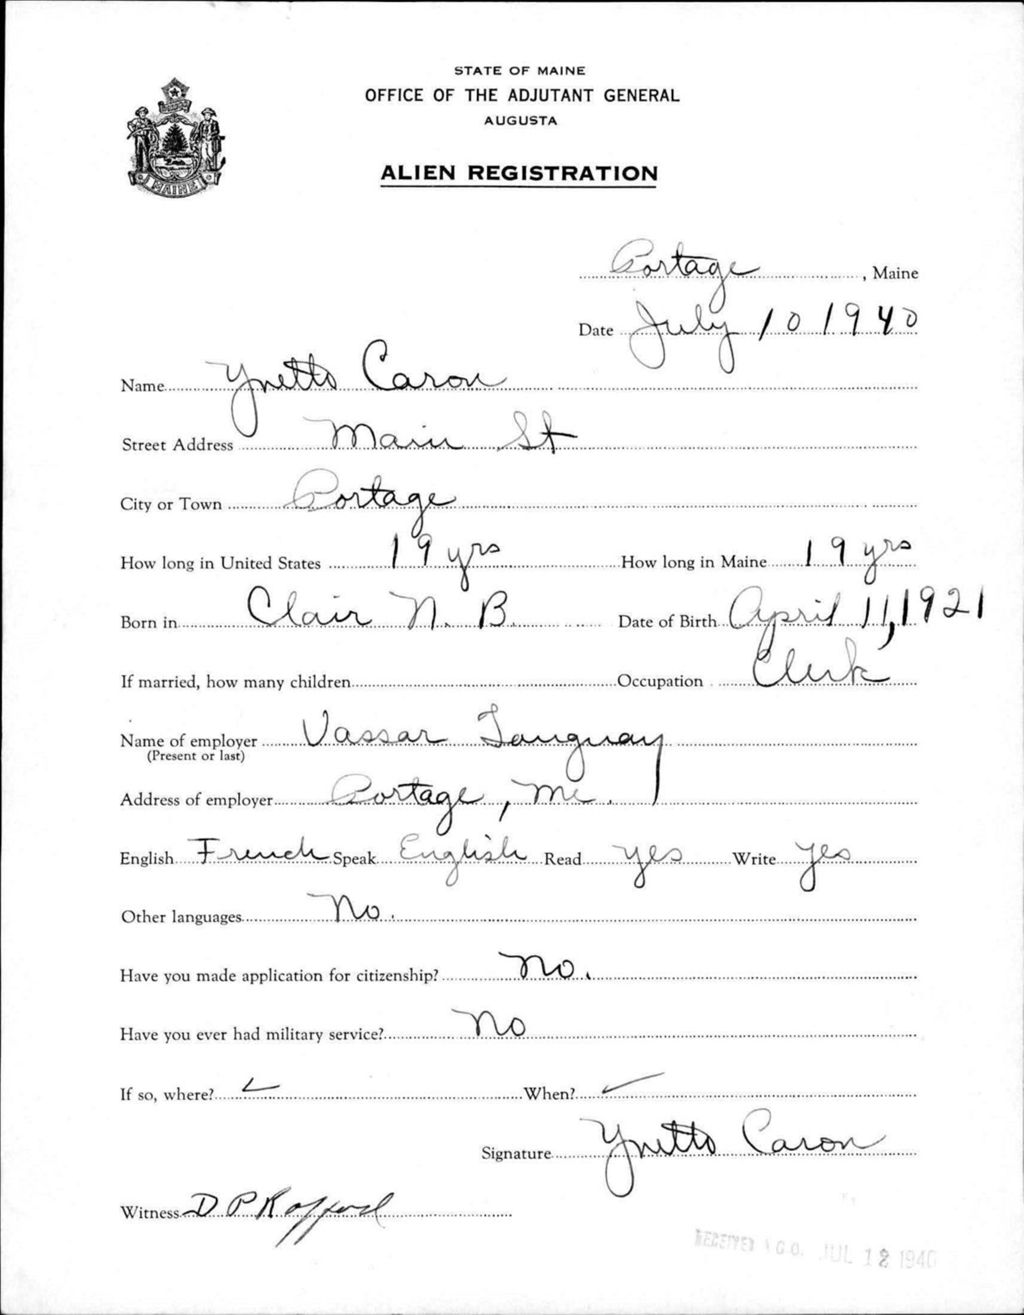 STATE OF MAINE
OFFICE OF THE ADJUTANT GENERAL
AUGUSTA
ALIEN REGISTRATION
MAINE
Portage, Maine
Date July 10 1940
Name Ynetto Caron
Street Address Main St
City or Town Portage
How long in United States 19 yrs How long in Maine 19 yrs
Born in Clair N. B. Date of Birth April 11, 1921
If married, how many children Occupation Clerk
Name of employer Vassar Tanguay
(Present or last)
Address of employer Portage, Me.
English French Speak English Read yes Write yes
Other languages No.
Have you made application for citizenship? No.
Have you ever had military service? No
If so, where? When?
Signature Ynetto Caron
Witness D P Rafford
RECEIVED A G O. JUL 12 1940